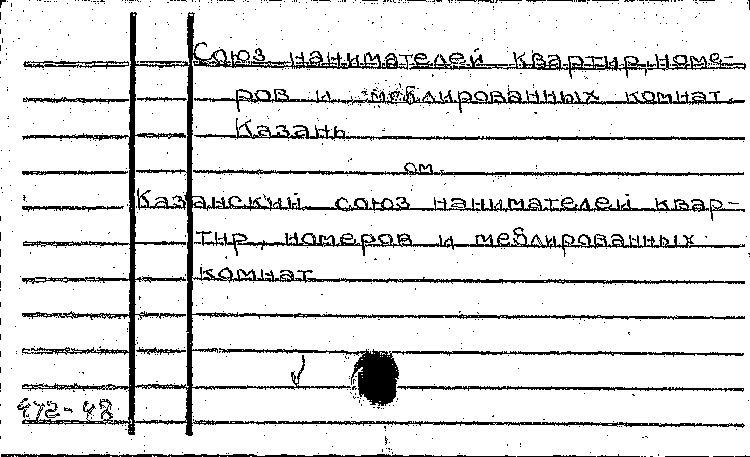 Союз нанимателей квартир, номе-
ров и меблированных комнат.
Казань
см.
Казанский союз нанимателей квар-
тир, номеров и меблированных
комнат
472-48